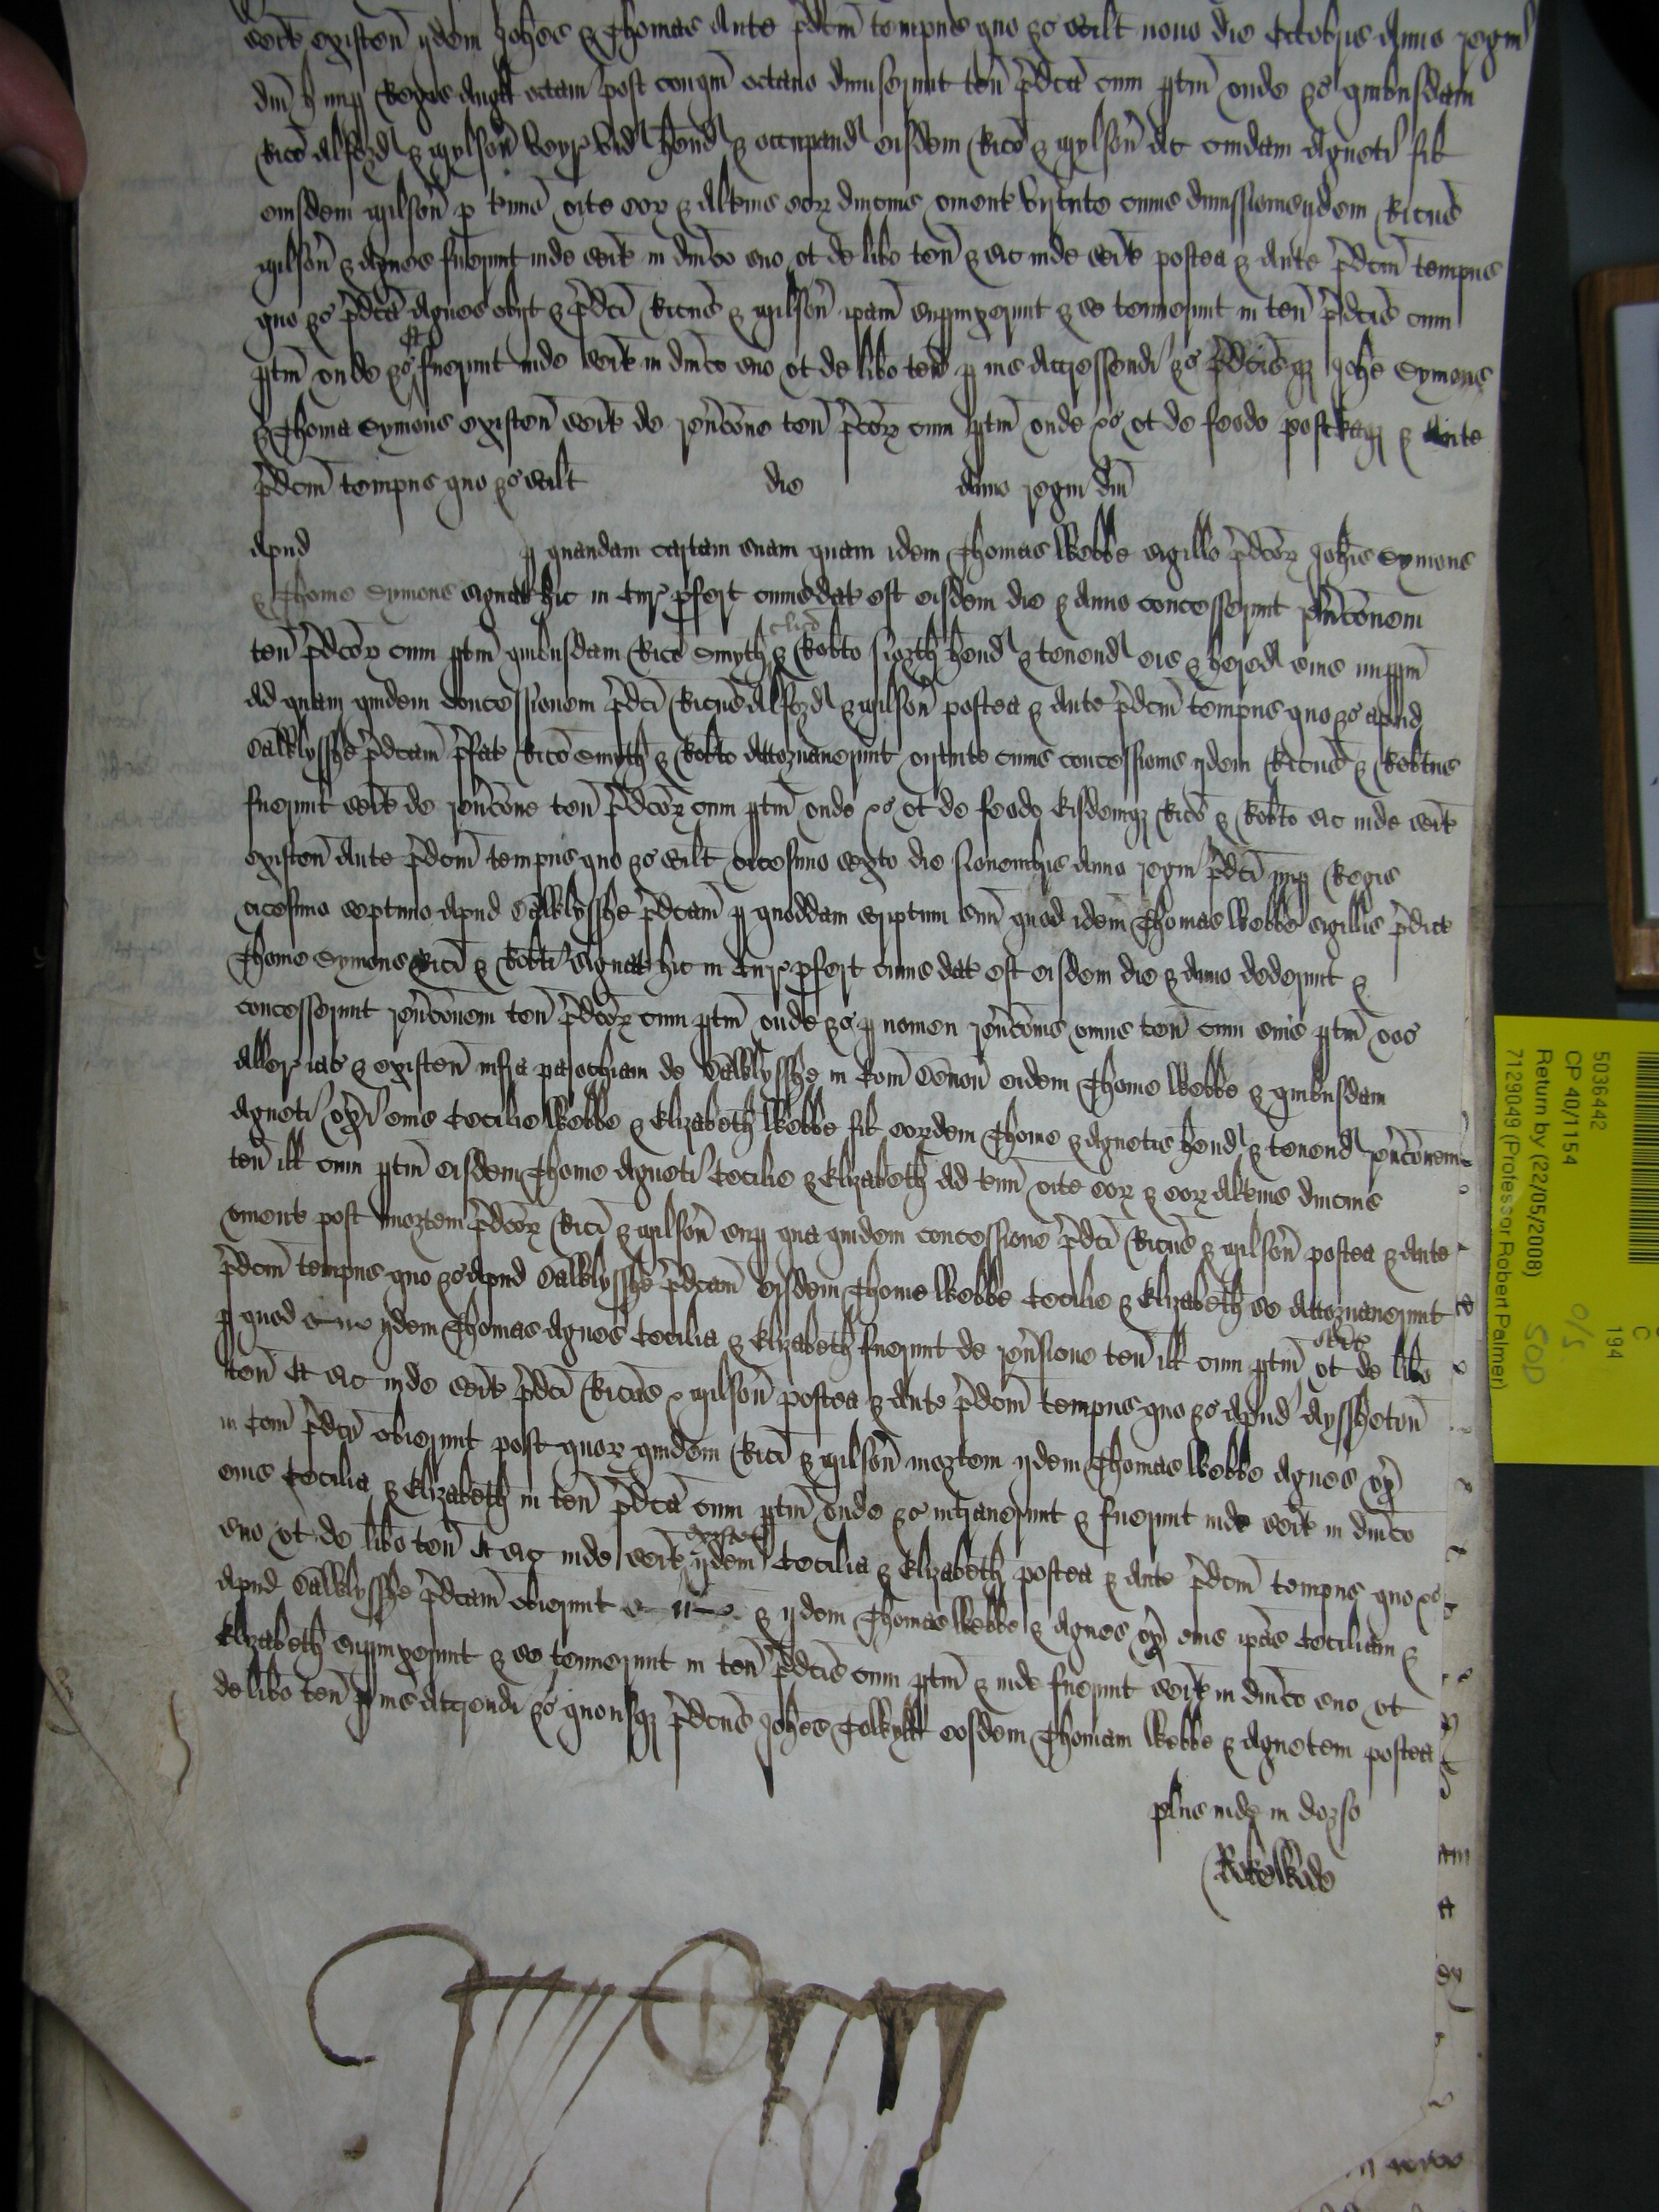 seit existen ijdem Johes & Thomas ante p̄dcm̄ tempus quo &c scilt nono die Octobris anno regni
dn̄i H nup Regis Angl octavi post conqm̄ octavo dimiserunt ten̄ p̄dca cum ptin̄ unde &c quibusdam
Rico Alford & Wilson̄ h̄end & occupand eisdem Rico & Wylson̄ ac cuidam Agneti fil
eiusdem Wilson̄ p̄ t̄mino vite eoȝ & alt̄ius eoȝ diucius vivent virtute cuius dimissionis ijdem Ricus
Wilson̄ & Agnes fuerunt inde seit in dn̄ico suo ut de libo ten̄ & sic inde seit postea & ante p̄dcm̄ tempus
quo &c p̄dca Agnes obijt & p̄dci Ricus & Wilson̄ ipam supvixerunt & se tenuerunt in ten̄ p̄dcis cum
ptin̄ unde &c & fuerunt inde seit in dn̄ico suo ut de libo ten̄ p ius accrescendi &c p̄dcisqȝ Johe Symons
& Thoma Symons existen seit de rev̄cone ten̄ p̄dcoȝ cum ptin̄ unde &c ut de feodo posteaqȝ & ante
p̄dcm̄ tempus quo &c scilt die anno regni dn̄i
apud p quandam cartam suam quam idem Thomas Webbe sigillo p̄dcoȝ Johis Symons
& Thome Symons signat hic in Cur p̄fert cuius dat est eisdem die & anno concesserunt rev̄conem
ten̄ p̄dcoȝ cum ptin̄ quibusdam Rico Smyth clico & Robto North h̄end & tenend eis & hered suis imppm̄
ad quam quidem concessionem p̄dci Ricus Alford & Wilson̄ postea & ante p̄dcm̄ tempus quo &c apud
Calklysshe p̄dcam p̄fat Rico Smyth & Robto attornaverunt virtute cuius concessionis ijdem Ricus & Robtus
fuerunt seit de rev̄cone ten̄ p̄dcoȝ cum ptin̄ unde &c ut de feodo Eisdemqȝ Rico & Robto sic inde seit
existen ante p̄dcm̄ tempus quo &c scilt vicesimo sexto die Novembris anno regni p̄dci nup Regis
vicesimo septimo apud Calklysshe p̄dcam p quoddam scriptum suū quod idem Thomas Webbe sigillis p̄dict
Thome Symons Rici & Robti signat hic in Cur p̄fert cuius dat est eisdem die & anno dederunt &
concesserunt rev̄conem ten̄ p̄dcoȝ cum ptin̄ unde &c p nomen rev̄conis unius ten̄ cum suis ptin̄ voc
Aller iac & existen infra parochiam de Calklysshe in Com Devon̄ eidem Thome Webbe & quibusdam
Agneti ux̄i eius Cecilie Webbe & Elizabeth Webbe fil eoȝdem Thome & Agnetis h̄end & tenend rev̄conem
ten̄ ill cum ptin̄ eisdem Thome Agneti Cecilie & Elizabeth ad t̄min̄ vite eoȝ & eoȝ alt̄ius diucius
vivent post mortem p̄dcoȝ Rici & Wilson̄ sup qua quidem concessione p̄dci Ricus & Wilson̄ postea & ante
p̄dcm̄ tempus quo &c apud Calklysshe p̄dcam eisdem Thome Webbe Cecilie & Elizabeth se attornaverunt
p quod ijdem Thomas Agnes Cecilia & Elizabeth fuerunt de rev̄sione ten̄ ill cum ptin̄ seit ut de libo
ten̄ Et sic inde seit p̄dci Ricus & Wilson̄ postea & ante p̄dcm̄ tempus quo &c apud Ayssheton̄
in Com p̄dco obierunt post quoȝ quidem Rici & Wilson̄ mortem ijdem Thomas Webbe Agnes ux̄
eius Cecilia & Elizabeth in ten̄ p̄dca cum ptin̄ unde &c intraverunt & fuerunt inde seit in dn̄ico
suo ut de libo ten̄ Et sic inde seit existen ijdem Cecilia & Elizabeth postea & ante p̄dcm̄ tempus quo &c
apud Calklysshe p̄dcam obierunt & ijdem Thomas Webbe & Agnes ux̄ eius ipas Ceciliam &
Elizabeth supvixerunt & se tenuerunt in ten̄ p̄dcis cum ptin̄ & inde fuerunt seit in dn̄ico suo ut
de libo ten̄ p ius accrendi &c quousqȝ p̄dcus Johes Tolkyll eosdem Thomam Webbe & Agnetem postea
plus inde in dorso
5036442
CP 40/1154
Return by (22/05/2008)
7129049 (Professor Robert Palmer)
194
C
O/S
SOD